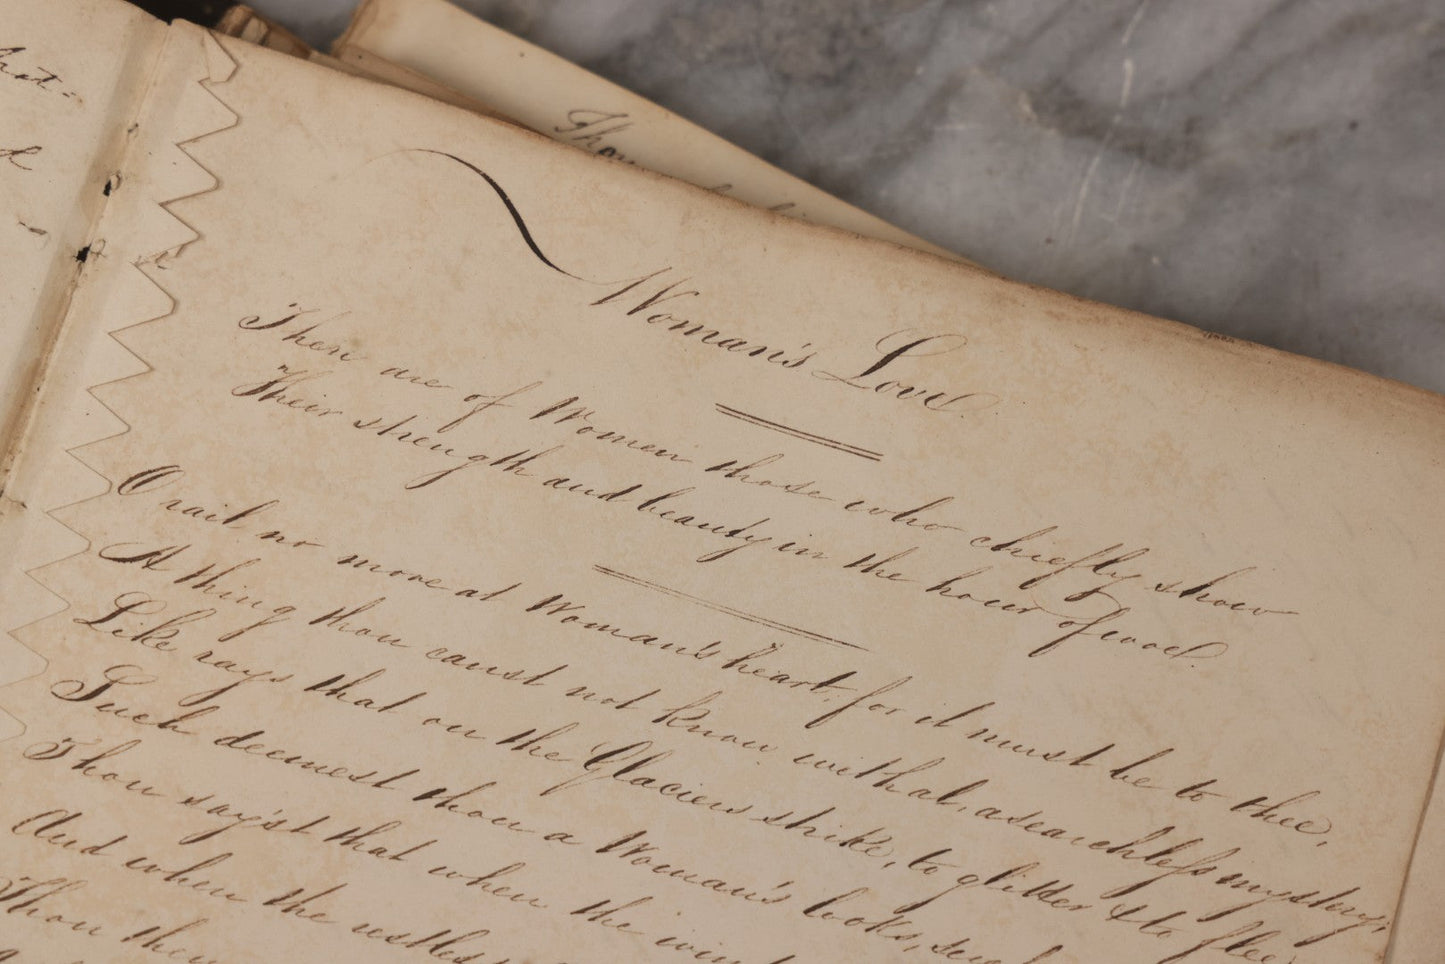 Woman's Love.
There are of Women those who chiefly show
Their strength and beauty in the hour of woe.
O rail no more at Woman's heart, for it must be to thee,
A thing thou canst not know withal, a searchless mystery;
Like rays that on the Glaciers strike, to glitter & to flee;
Such deemest thou a Woman's looks, such
Thou say'st that when the
And when the restless
Thou
Thou